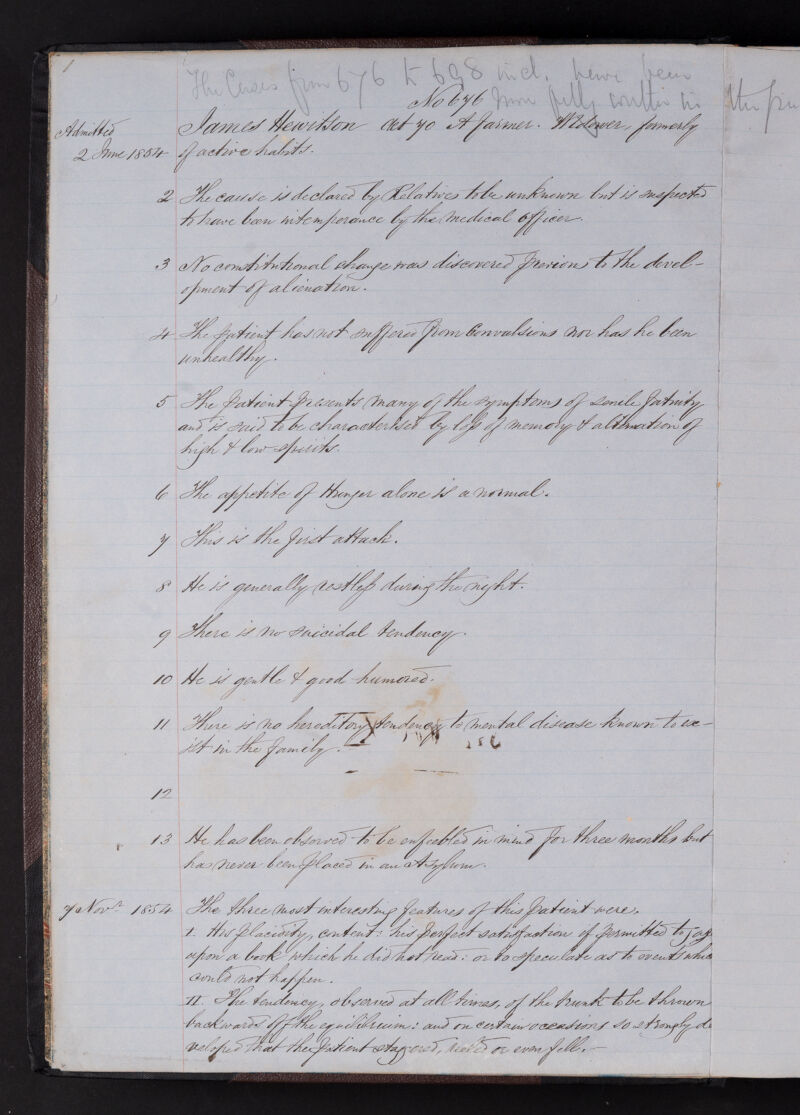 1
The Cases from 676 to 698 incl. have been
No 676 more fully written in
Admitted
James Hewitson aet 70 A farmer. Widower, formerly
2 June 1854 of active habits.
2 The cause is declared by Relatives to be unknown but is suspected
to have been intemperance by the medical officer.
3 No constitutional change was discovered previous to the devel-
opment of alienation.
4 The patient has not suffered from Convulsions nor has he been
unhealthy.
5 The Patient presents many of the symptoms of senile fatuity
and is said to be characterised by loss of memory & alternation of
high & low spirits.
6 The appetite of Hunger alone is a normal.
7 This is the first attack.
8 He is generally restless during the night.
9 There is no suicidal tendency.
10 He is gentle & good humored.
11 There is no hereditory tendency to mental disease known to ex-
ist in the family.
12
13 He has been observed to be enfeebled in mind for three months but
has never been placed in an Asylum.
7 Novr 1854 The three most interesting features of this patient were.
I. His placidity, content: his perfect satisfaction if permitted to
upon a book which he did not read: or to speculate as to events which
could not happen.
II. The tendency, observed at all times, of the trunk to be thrown
backwards off the equilibrium: and on certain occasions so strongly de
veloped that the patient staggered, reeled or even fell.—